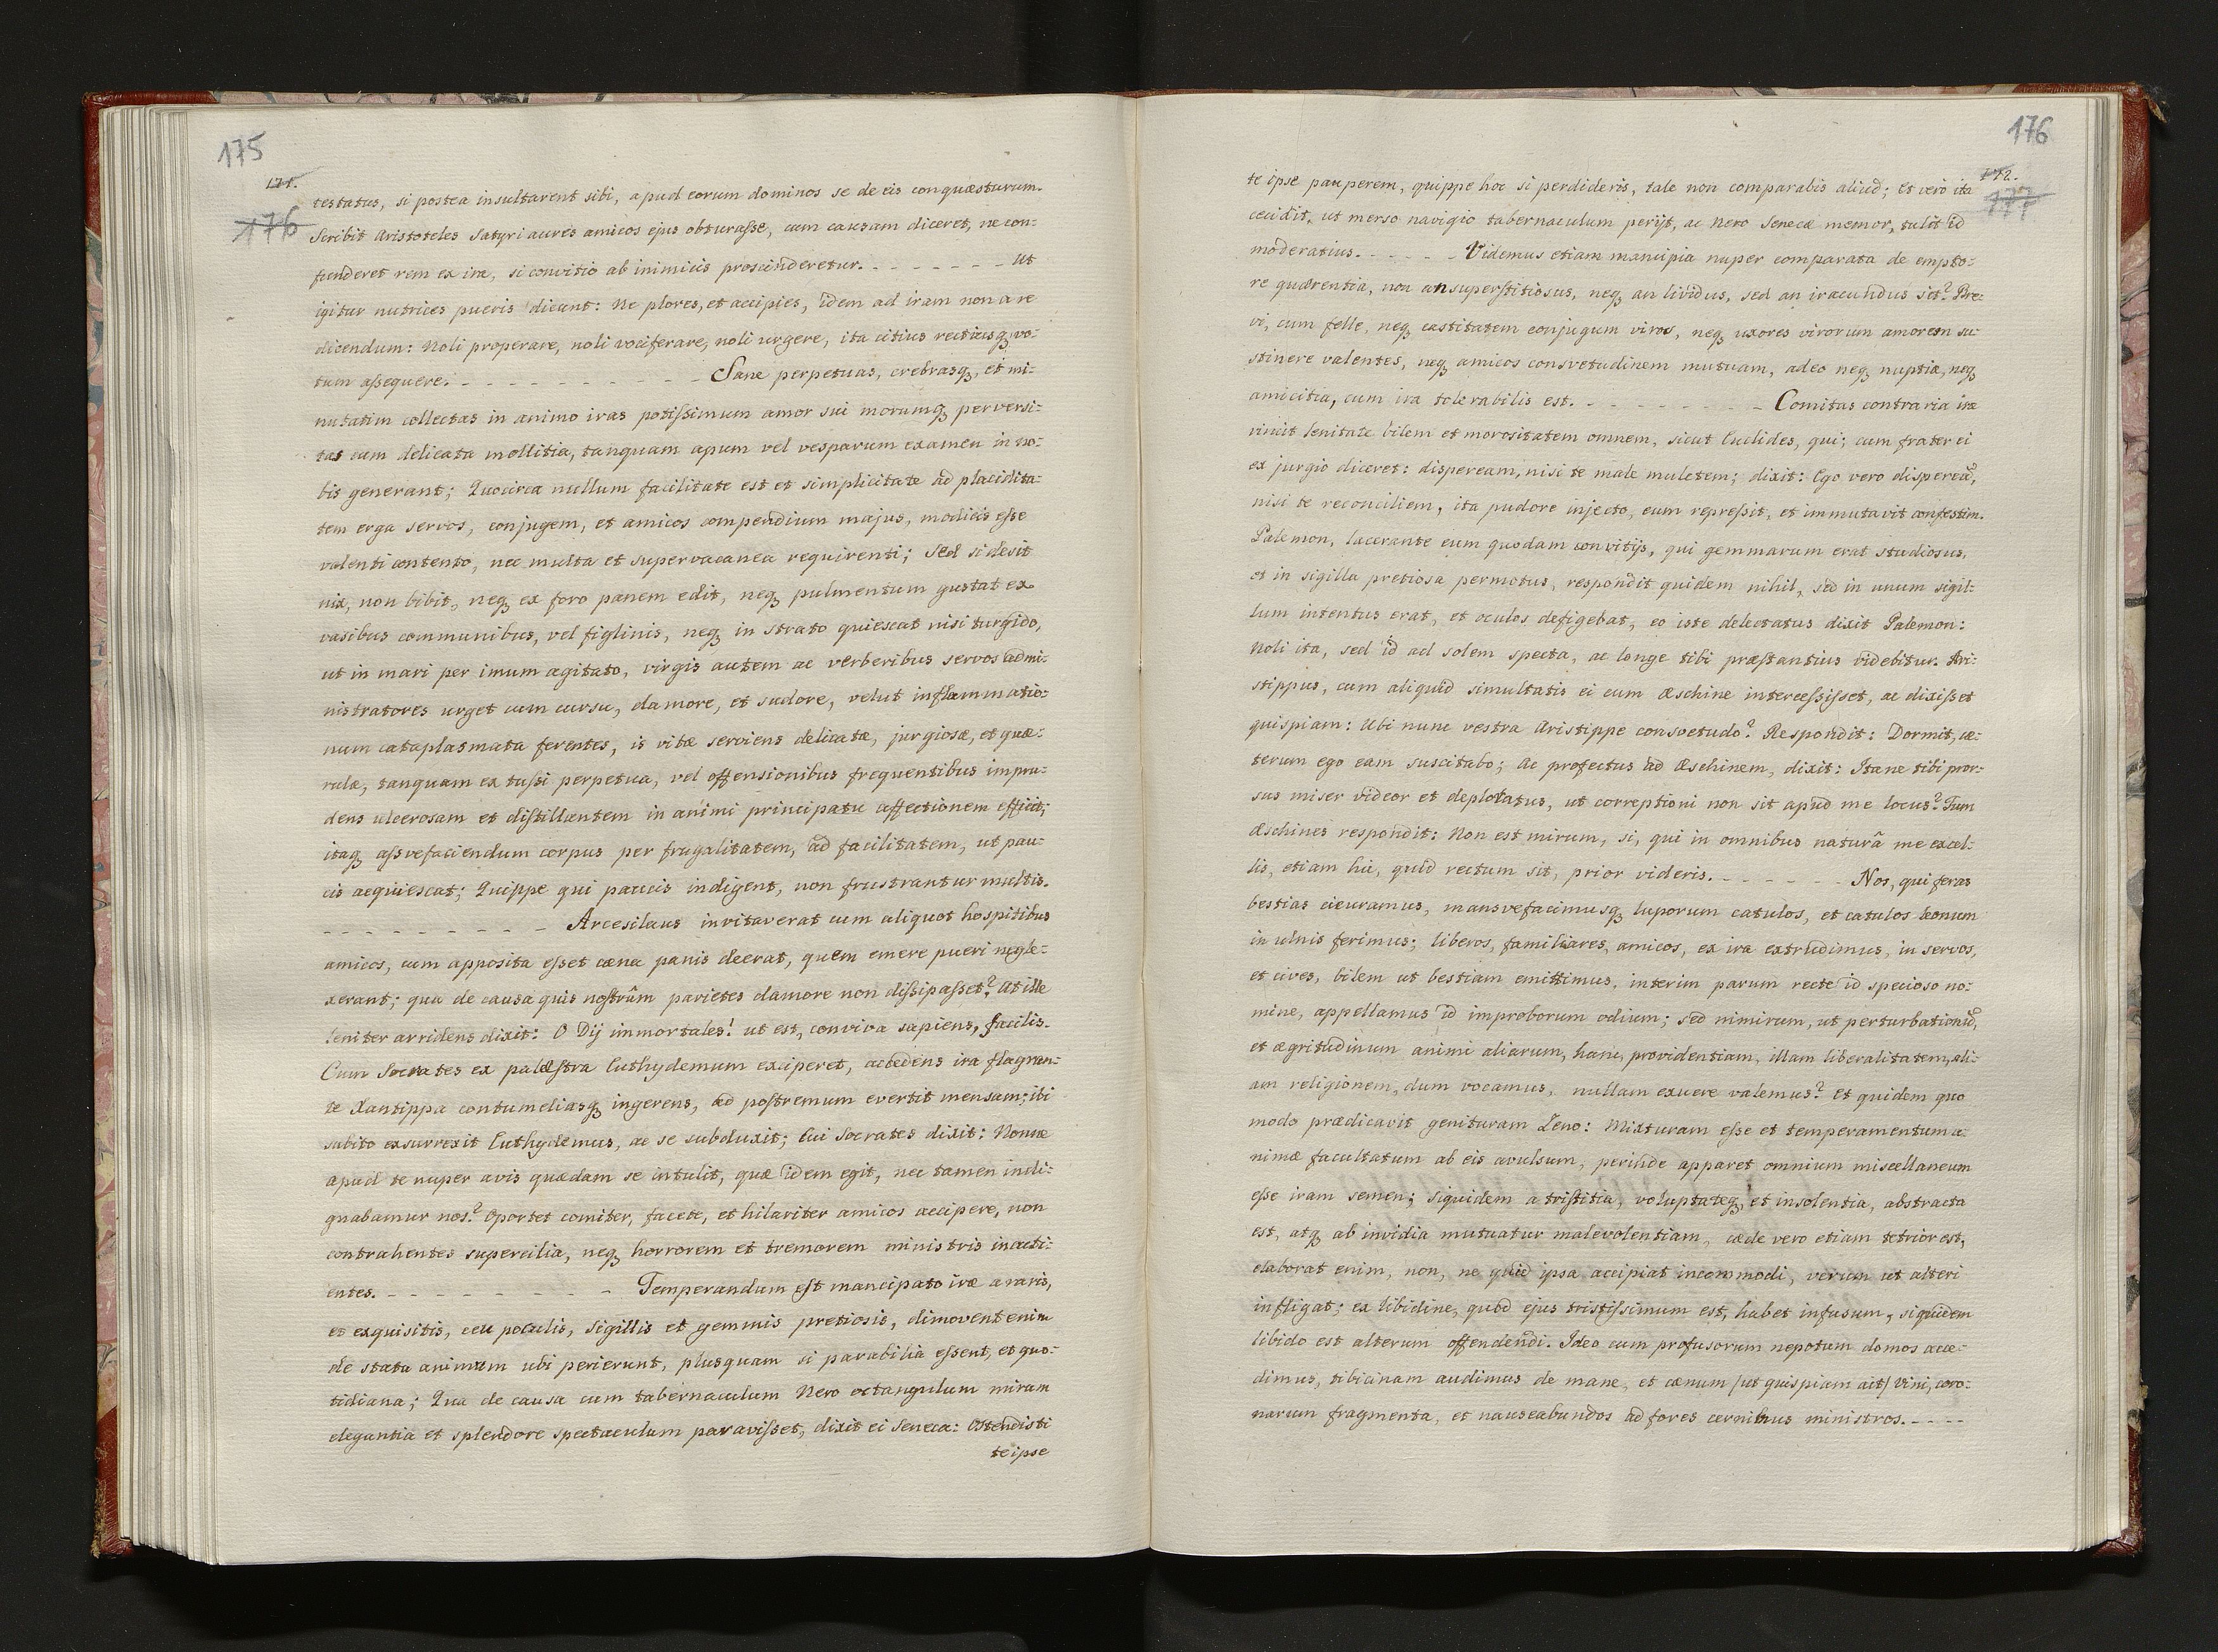 175
171.
176
testatus, si postea insultarent sibi, apud eorum dominos se de eis conquæsturum.
Scribit Aristoteles Satyri aures amicos ejus obturasse, cum causam diceret, ne con-
funderet rem ex ira, si convitio ab inimicis proscinderetur. - - - - - - - Ut
igitur nutrices pueris dicunt: Ne plores, et accipies, idem ad iram non a re
dicendum: Noli properare, noli vociferare, noli urgere, ita citius rectiusq, vo-
tum assequere. - - - - - - - - - - - Sane perpetuas, crebrasq, et mi-
nutatim collectas in animo iras potissimum amor sui morumq perversi-
tas cum delicata mollitia, tanquam apum vel vesparum examen in no-
bis generant; Quocirca nullum facilitate est et simplicitate ad placidita-
tem erga servos, conjugem, et amicos compendium majus, modicis esse
valenti contento, nec multa et supervacanea requirenti; Sed si desit
nix, non bibit, neq ex foro panem edit, neq pulmentum gustat ex
vasibus communibus, vel figlinis, neq in strato quiescat nisi turgido,
ut in mari per imum agitato, virgis autem ac verberibus servos admi-
nistratores urget cum cursu, clamore, et sudore, velut inflammatio-
num cataplasmata ferentes, is vitæ serviens delicatæ, jurgiosæ, et quæ-
rulæ, tanquam ex tussi perpetua, vel offensionibus frequentibus impru-
dens ulcerosam et distillantem in animi principatu affectionem efficit;
itaq assvefaciendum corpus per frugalitatem, ad facilitatem, ut pau-
cis acquiescat; Quippe qui paucis indigent, non frustrantur multis.
- - - - - - - - - - Arcesilaus invitaverat cum aliquot hospitibus
amicos, cum apposita esset cæna panis deerat, quem emere pueri negle-
xerant; qua de causa quis nostrûm parietes clamore non dissipasset? At ille
leniter arridens dixit: O Dij immortales! ut est, conviva sapiens, facilis.
Cum Socrates ex palæstra Euthydemum exciperet, accedens ira flagran-
te Xantippa contumeliasq ingerens, ad postremum evertit mensam; ibi
subito exsurrexit Euthydemus, ac se subduxit; Cui Socrates dixit: Nonne
apud te nuper avis quædam se intulit, quæ idem egit, nec tamen indi-
gnabamur nos? Oportet comiter, facete, et hilariter amicos accipere, non
contrahentes supercilia, neq horrorem et tremorem ministris incuti-
entes. - - - - - - - - - - Temperandum est mancipato iræ a raris,
et exquisitis, ceu poculis, Sigillis et gemmis pretiosis, dimovent enim
de statu animum ubi perierunt, plusquam si parabilia essent, et quo-
tidiana; Qua de causa cum tabernaculum Nero octangulum miram
elegantia et splendore spectaculum paravisset, dixit ei Seneca: Ostendisti
te ipse
176
172.
177
te ipse pauperem, quippe hoc si perdideris, tale non comparabis aliud; et vero ita
cecidit, ut merso navigio tabernaculum perijt, ac Nero Senecæ memor, tulit id
moderatius. - - - - - Videmus etiam mancipia nuper comparata de empto-
re quærentia, non an superstitiosus, neq an lividus, sed an iracundus sit? Bre-
vi, cum felle, neq castitatem conjugum viros, neq uxores virorum amorem su-
stinere valentes, neq amicos consvetudinem mutuam, adeo neq nuptiæ, neq
amicitia, cum ira tolerabilis est. - - - - - - - - Comitas contraria iræ
vincit lenitate bilem et morositatem omnem, sicut Euclides, qui; cum frater ei
ex jurgio diceret: dispeream, nisi te male muletem; dixit: Ego vero dispereã,
nisi te reconciliem, ita pudore injecto, eum repressit, et immutavit confestim.
Palemon, lacerante eum quodam convitijs, qui gemmarum erat studiosus,
et in sigilla pretiosa permotus, respondit quidem nihil, sed in unum sigil-
lum intentus erat, et oculos defigebat, eo iste delectatus dixit Palemon:
Noli ita, sed id ad solem specta, ac longe tibi præstantius videbitur. Ari-
stippus, cum aliquid simultatis ei cum Æschine intercessisset, ac dixisset
quispiam: Ubi nunc vestra Aristippe consvetudo? Respondit: Dormit, cæ-
terum ego eam suscitabo; Ac profectus ad Æschinem, dixit: Itane tibi pror-
sus miser videor et deploratus, ut correptioni non sit apud me locus? Tum
Æschines respondit: Non est mirum, si, qui in omnibus naturâ me excel-
lis, etiam hic, quid rectum sit, prior videris. - - - - - - Nos, qui feras
bestias cicuramus, mansvefacimusq luporum catulos, et catulos leonum
in ulnis ferimus; liberos, familiares, amicos, ex ira extrudimus, in servos,
et cives, bilem ut bestiam emittimus, interim parum recte id specioso no-
mine, appellamus id improborum odium; sed nimirum, ut perturbationũ,
et ægritudinum animi aliarum, hanc, providentiam, illam liberalitatem, ali-
am religionem, dum vocamus, nullam exuere valemus? Et quidem quo
modo prædicavit genituram Zeno: Mixturam esse et temperamentum a-
nimæ facultatum ab eis avulsum, perinde apparet omnium miscellaneum
esse iram semen; siquidem a tristitia, voluptateq, et insolentia, abstracta
est, atq ab invidia mutuatur malevolentiam, cæde vero etiam tetrior est,
elaborat enim, non, ne quid ipsa accipiat incommodi, verum ut alteri
infligat; ex libidine, quod ejus tristissimum est, habet infusum, siquidem
libido est alterum offendendi. Ideo cum profusorum nepotum domos acce-
dimus, tibicinam audimus de mane, et cænum /ut quispiam ait/ vini, coro-
narum fragmenta, et nauseabundos ad fores cernimus ministros. - - - -